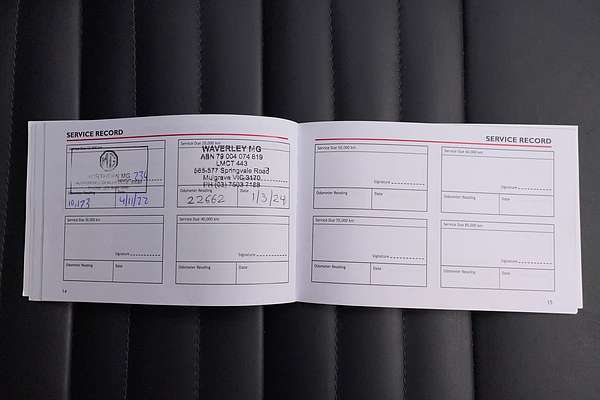 SERVICE RECORD
MG
NORTHERN MG
10,123
4/11/22
Service Due 20,000 km
WAVERLEY MG
ABN 79 004 074 619
LMCT 443
565-577 Springvale Road
Mulgrave VIC 3170
PH (03) 7503 7188
Odometer Reading
22662
1/3/24
Service Due 30,000 km
Signature
Odometer Reading
Date
Service Due 40,000 km
Signature
Odometer Reading
Date
14
SERVICE RECORD
Service Due 50,000 km
Signature
Odometer Reading
Date
Service Due 60,000 km
Signature
Odometer Reading
Date
Service Due 70,000 km
Signature
Odometer Reading
Date
Service Due 80,000 km
Signature
Odometer Reading
Date
15